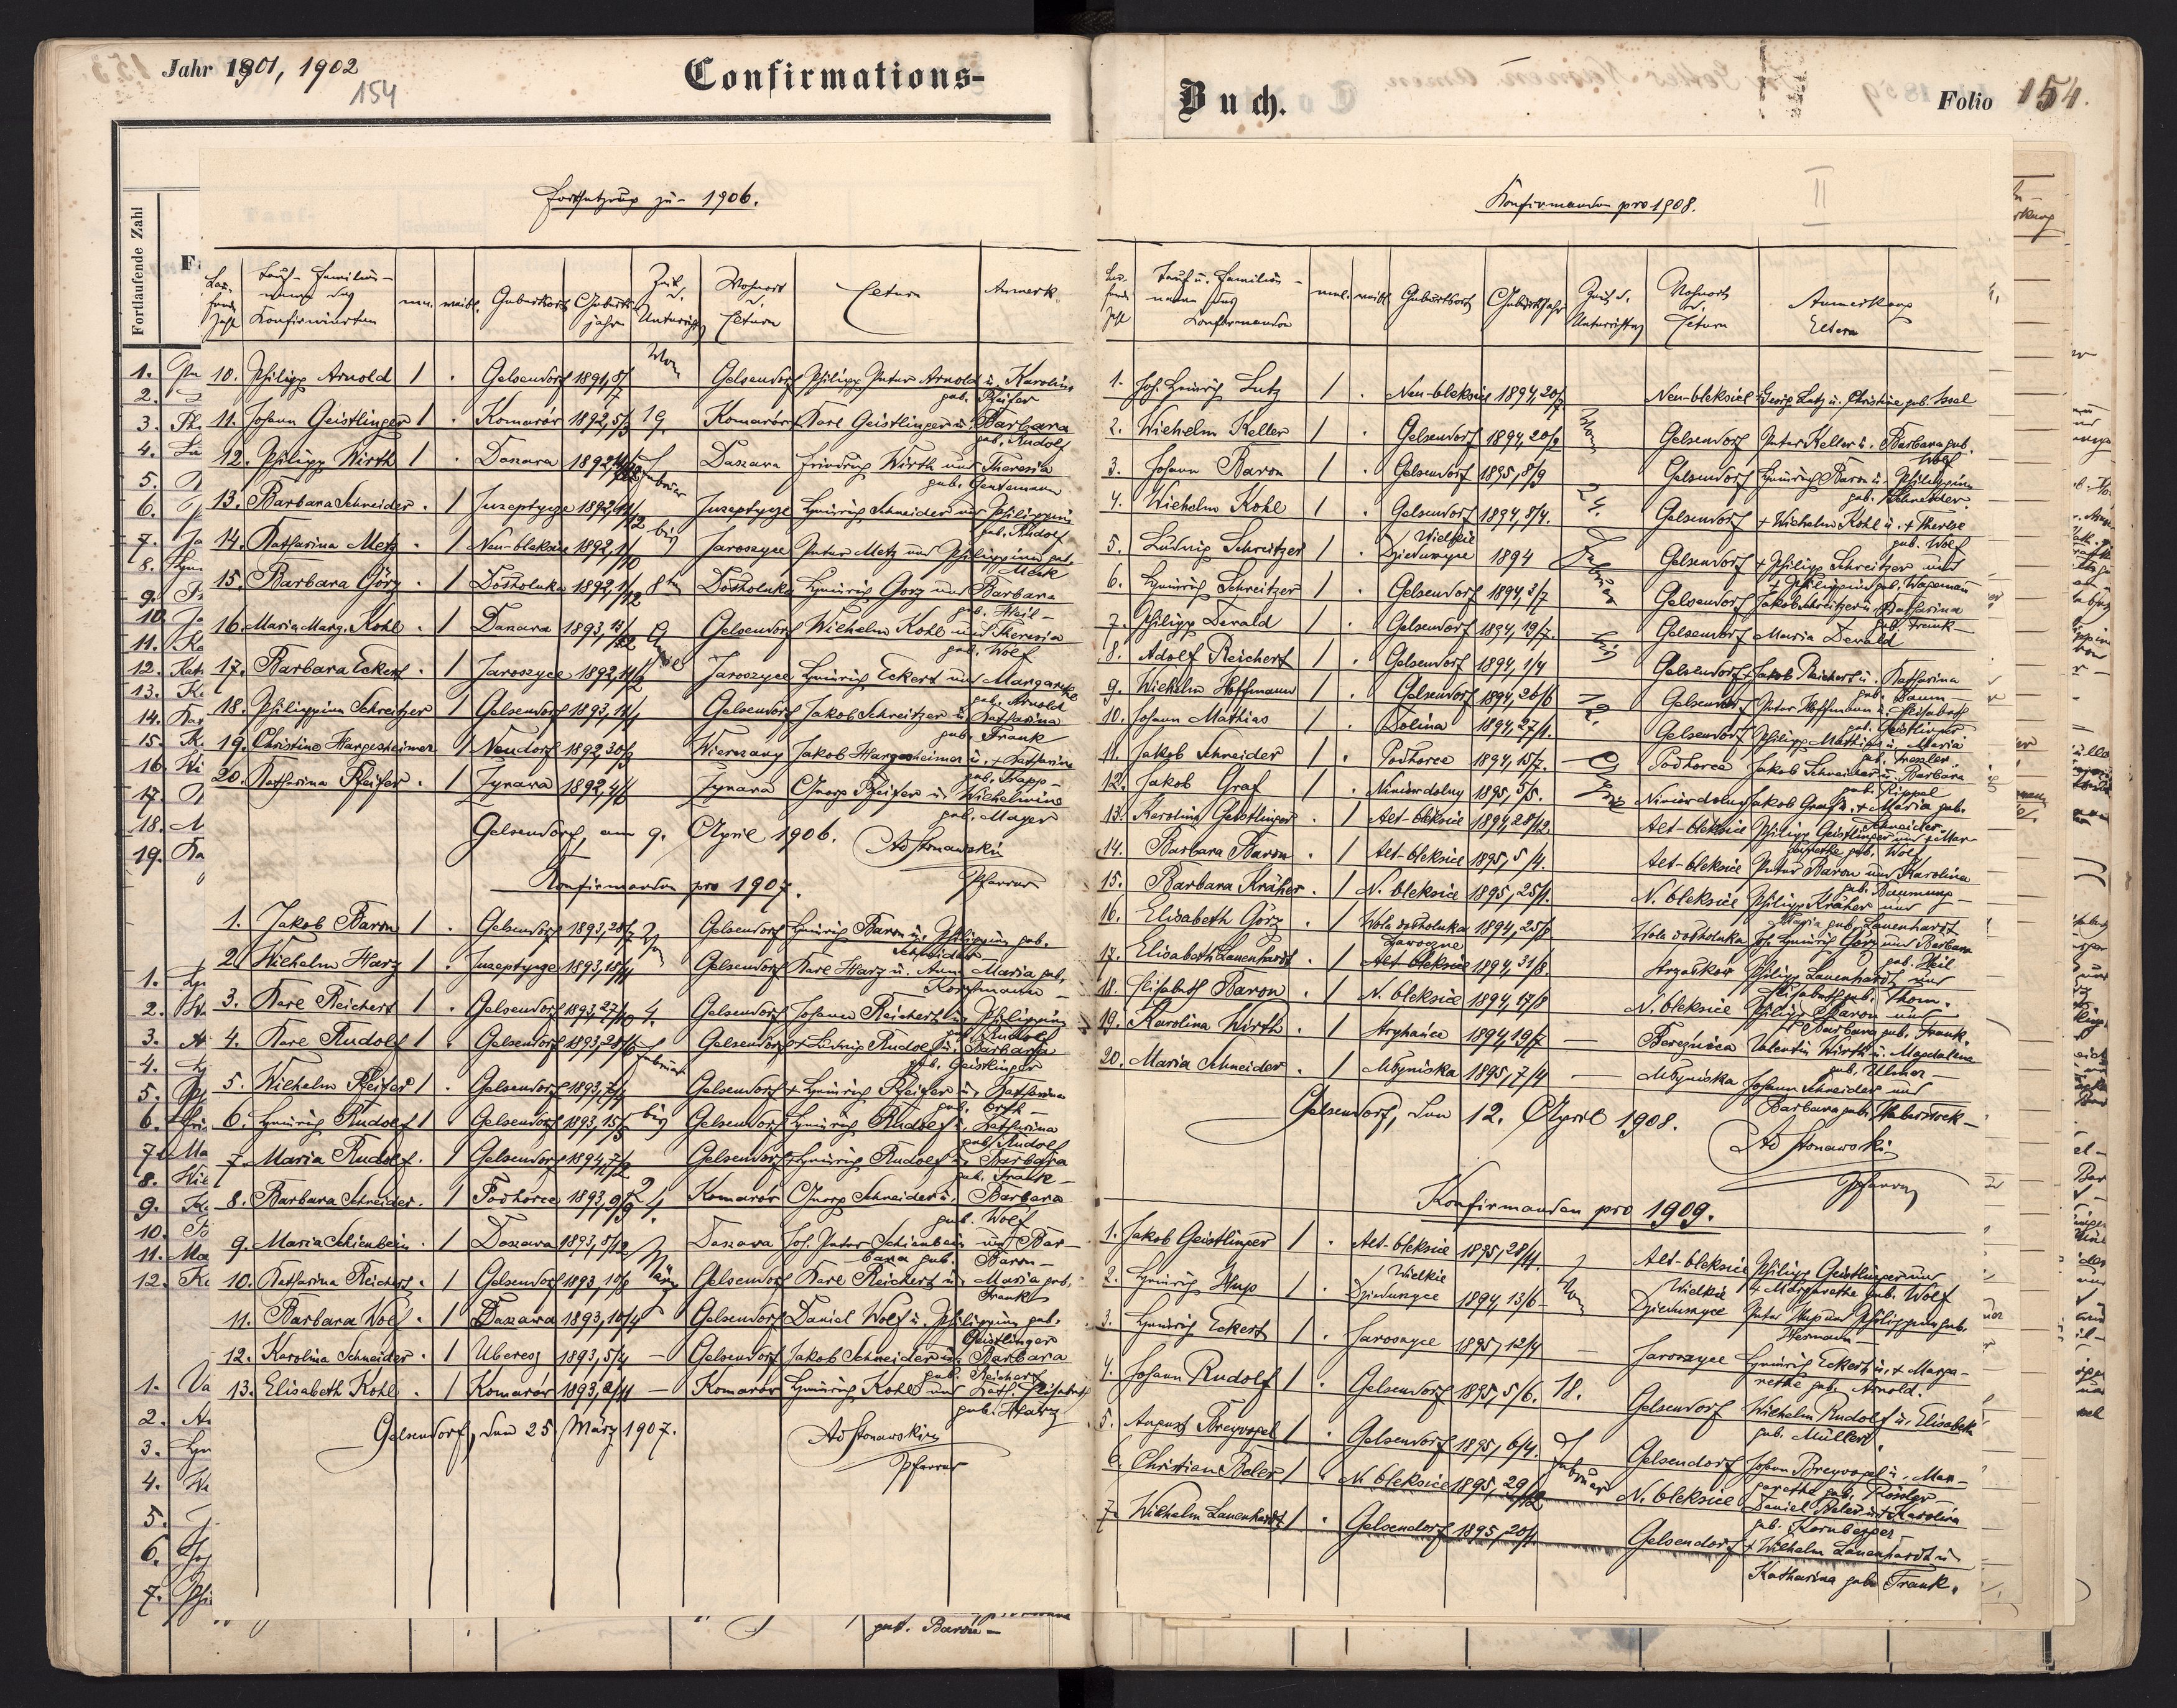 Jahr 1901, 1902
154
Confirmations-
Buch.
Folio 154.
Fortlaufende Zahl
Fortsetzung zu 1906.
Tauf- Familien-
name des
Konfirmierten
weibl. Geburtsort Geburts-
jahr
Zeit d. Unterrichts
Wohnort d. Eltern
Eltern
Anmerk.
10. Philipp Arnold 1 . Gelsendorf 1891, 8/7 Vom Gelsendorf Philipp Peter Arnold u. Karolina
geb. Pfeifer
11. Johann Geistlinger 1 . Komarów 1892, 5/3 19. Komarów Karl Geistlinger u. Barbara
geb. Rudolf
12. Philipp Wirth 1 . Daszawa 1892 Februar Daszawa Friedrich Wirth und Theresia
geb. Gentemann
13. Barbara Schneider . 1 Juseptycze 1892, 14/12 Juseptycze Heinrich Schneider und Philippina
geb. Rudolf
14. Katharina Metz . 1 Neu-Oleksice 1892, 1/10 bis Jaroszyce Peter Metz und Philippina geb.
Merk
15. Barbara Görz . 1 Dolholuka 1892, 1/12 8ten Dolholuka Heinrich Görz und Barbara
geb. Heil -
16. Maria Marg. Kohl . 1 Daszawa 1893, 13/12 April Gelsendorf Wilhelm Kohl und Theresia
geb. Wolf
17. Barbara Eckert . 1 Jaroszyce 1892, 11/12 Jaroszyce Heinrich Eckert und Margarethe
geb. Arnold
18. Philippina Schreitzer 1 Gelsendorf 1893, 18/1 Gelsendorf Jakob Schreitzer u. Katharina
geb. Frank
19. Christine Hargesheimer 1 Neudorf 1892, 30/3 Wierczany Jakob Hargesheimer u. + Katharina
geb. Trapp -
20. Katharina Pfeifer . 1 Zyrawa 1892, 4/6 Zyrawa Georg Pfeifer u. Wilhelmine
geb. Mayer
Gelsendorf, am 9. April 1906. Ad Stonawski
Pfarrer
Konfirmanden pro 1907.
1. Jakob Baron 1 . Gelsendorf 1893, 28/7 Vom Gelsendorf Heinrich Baron u. Philippina geb.
Schneider
2. Wilhelm Harz 1 . Juseptycze 1893, 15/11 Gelsendorf Karl Harz u. Anna Maria geb.
Korchmann -
3. Karl Reichert 1 . Gelsendorf 1893, 27/10 4. Gelsendorf Johann Reichert u. Philippina
geb. Rudolf
4. Karl Rudolf 1 . Gelsendorf 1893, 28/6 Februar Gelsendorf + Ludwig Rudolf u. Barbara
geb. Geistlinger
5. Wilhelm Pfeifer 1 . Gelsendorf 1893, 7/4 Gelsendorf + Heinrich Pfeifer u. Katharina
geb.
6. Heinrich Rudolf 1 . Gelsendorf 1893, 15/5 bis Gelsendorf Heinrich Rudolf u. Katharina
geb. Rudolf
7. Maria Rudolf . 1 Gelsendorf 1894, 7/2 Gelsendorf Heinrich Rudolf u. Barbara
geb. Frank -
8. Barbara Schneider . 1 Podhorce 1893, 9/9 24. Komarów Georg Schneider u. Barbara
geb. Wolf
9. Maria Schienbein . 1 Daszawa 1893, 8/12 März Daszawa Joh. Peter Schienbein und Bar-
bara geb. Baron -
10. Katharina Reichert . 1 Gelsendorf 1893, 10/8 Gelsendorf Karl Reichert u. Maria geb.
Frank
11. Barbara Wolf . 1 Daszawa 1893, 10/4 - Gelsendorf Daniel Wolf u. Philippina geb.
Geistlinger
12. Karolina Schneider . 1 Uberesz 1893, 5/4 - Gelsendorf Jakob Schneider u. Barbara
geb. Reichert
13. Elisabeth Kohl . 1 Komarów 1893, 2/11 - Komarów Heinrich Kohl und Kath. Elisabeth
geb. Harz
Gelsendorf, den 25 März 1907. Ad Stonawski
Pfarrer
geb. Baron -
II
Konfirmanden pro 1908.
Tauf u. Familien-
namen des
Konfirmanden
mnl. weibl. Geburtsort Geburtsjahr
Zeit d. Unterrichts
Wohnort d. Eltern
Anmerkung
Eltern
1. Joh. Heinrich Lutz 1 . Neu-Oleksice 1894, 20/7 Neu-Oleksice Georg Lutz u. Christine geb. Issel
2. Wilhelm Keller 1 . Gelsendorf 1894, 20/2 Vom Gelsendorf Peter Keller u. Barbara geb.
Wolf
3. Johann Baron 1 . Gelsendorf 1895, 8/9 Gelsendorf Heinrich Baron u. Philippina
geb. Schneider
4. Wilhelm Kohl 1 . Gelsendorf 1894, 8/4. 24. Gelsendorf + Wilhelm Kohl u. + Therese
geb. Wolf
5. Ludwig Schreitzer 1 . Wielkie Dzieduszyce 1894 Februar Gelsendorf + Philipp Schreitzer und
+ Philippina geb. Wagemann
6. Heinrich Schreitzer 1 . Gelsendorf 1894, 3/7 Gelsendorf Jakob Schreitzer u. Katharina
geb. Frank -
7. Philipp Dewald 1 . Gelsendorf 1894, 19/7. Gelsendorf Maria Dewald
8. Adolf Reichert 1 . Gelsendorf 1894, 1/4 bis Gelsendorf + Jakob Reichert u. Katharina
geb. Baum -
9. Wilhelm Hoffmann 1 . Gelsendorf 1894, 26/6 12. Gelsendorf Peter Hoffmann u. Elisabeth
geb. Geistlinger
10. Johann Mathias 1 . Dolina 1894, 27/1. Gelsendorf Philipp Mathias u. Maria
geb. Fressler
11. Jakob Schneider 1 . Podhorce 1894, 15/7. April Podhorce Jakob Schneider u. Barbara
geb. Rippel
12. Jakob Graf 1 . Niniówdolny 1895, 5/5. Niniówdolny Jakob Graf u. + Maria geb.
Schneider
13. Karolina Geistlinger . 1 Alt-Oleksice 1894, 28/12 Alt-Oleksice Philipp Geistlinger und + Mar-
garethe geb. Wolf
14. Barbara Baron . 1 Alt-Oleksice 1895, 5/4. Alt-Oleksice Peter Baron und Karolina
geb. Baumung -
15. Barbara Kräher . 1 N. Oleksice 1895, 25/1. N. Oleksice Philipp Kräher und
Maria geb. Lauenhardt
16. Elisabeth Görz . 1 Wola dolholuka 1894, 25/8 Wola dolholuka Joh. Heinrich Görz und Barbara
geb. Heil
17. Elisabeth Lauenhardt . 1 Zawozne Alt Oleksice 1894, 31/8 Philipp Lauenhardt und
Elisabeth geb. Thom.
18. Elisabeth Baron . 1 N. Oleksice 1894, 17/8 N. Oleksice Philipp Baron und
+ Barbara geb. Frank.
19. Karolina Wirth . 1 Stryhańce 1894, 19/7 - Bereznica Valentin Wirth u. Magdalena
geb. Ulmer -
20. Maria Schneider . 1 Młyniska 1895, 7/4 - Młyniska Johann Schneider und
Barbara geb. Haberstock -
Gelsendorf, den 12. April 1908.
Ad Stonawski
Pfarrer
Konfirmanden pro 1909.
1. Jakob Geistlinger 1 . Alt-Oleksice 1895, 28/4 Alt-Oleksice Philipp Geistlinger und
+ Margarethe geb. Wolf
2. Heinrich Hup 1 . Wielkie Dzieduszyce 1894, 13/6 - Vom Wielkie Dzieduszyce Peter Hup und Philippina geb.
Hermann
3. Heinrich Eckert 1 . Jaroszyce 1895, 12/4 - Jaroszyce Heinrich Eckert u. + Marga-
rethe geb. Arnold.
4. Johann Rudolf 1 . Gelsendorf 1895, 5/6. 18. Gelsendorf Wilhelm Rudolf u. Elisabeth
geb. Müller.
5. August Breyvogel 1 . Gelsendorf 1895, 6/4. Februar Gelsendorf Johann Breyvogel u. Mar-
garetha geb. Rössler
6. Christian Beler 1 . N. Oleksice 1895, 29/12 N. Oleksice Daniel Beler u. + Karolina
geb. Kornberger -
7. Wilhelm Lauenhardt 1 . Gelsendorf 1895, 20/1. Gelsendorf + Wilhelm Lauenhardt u.
Katharina geb. Frank.